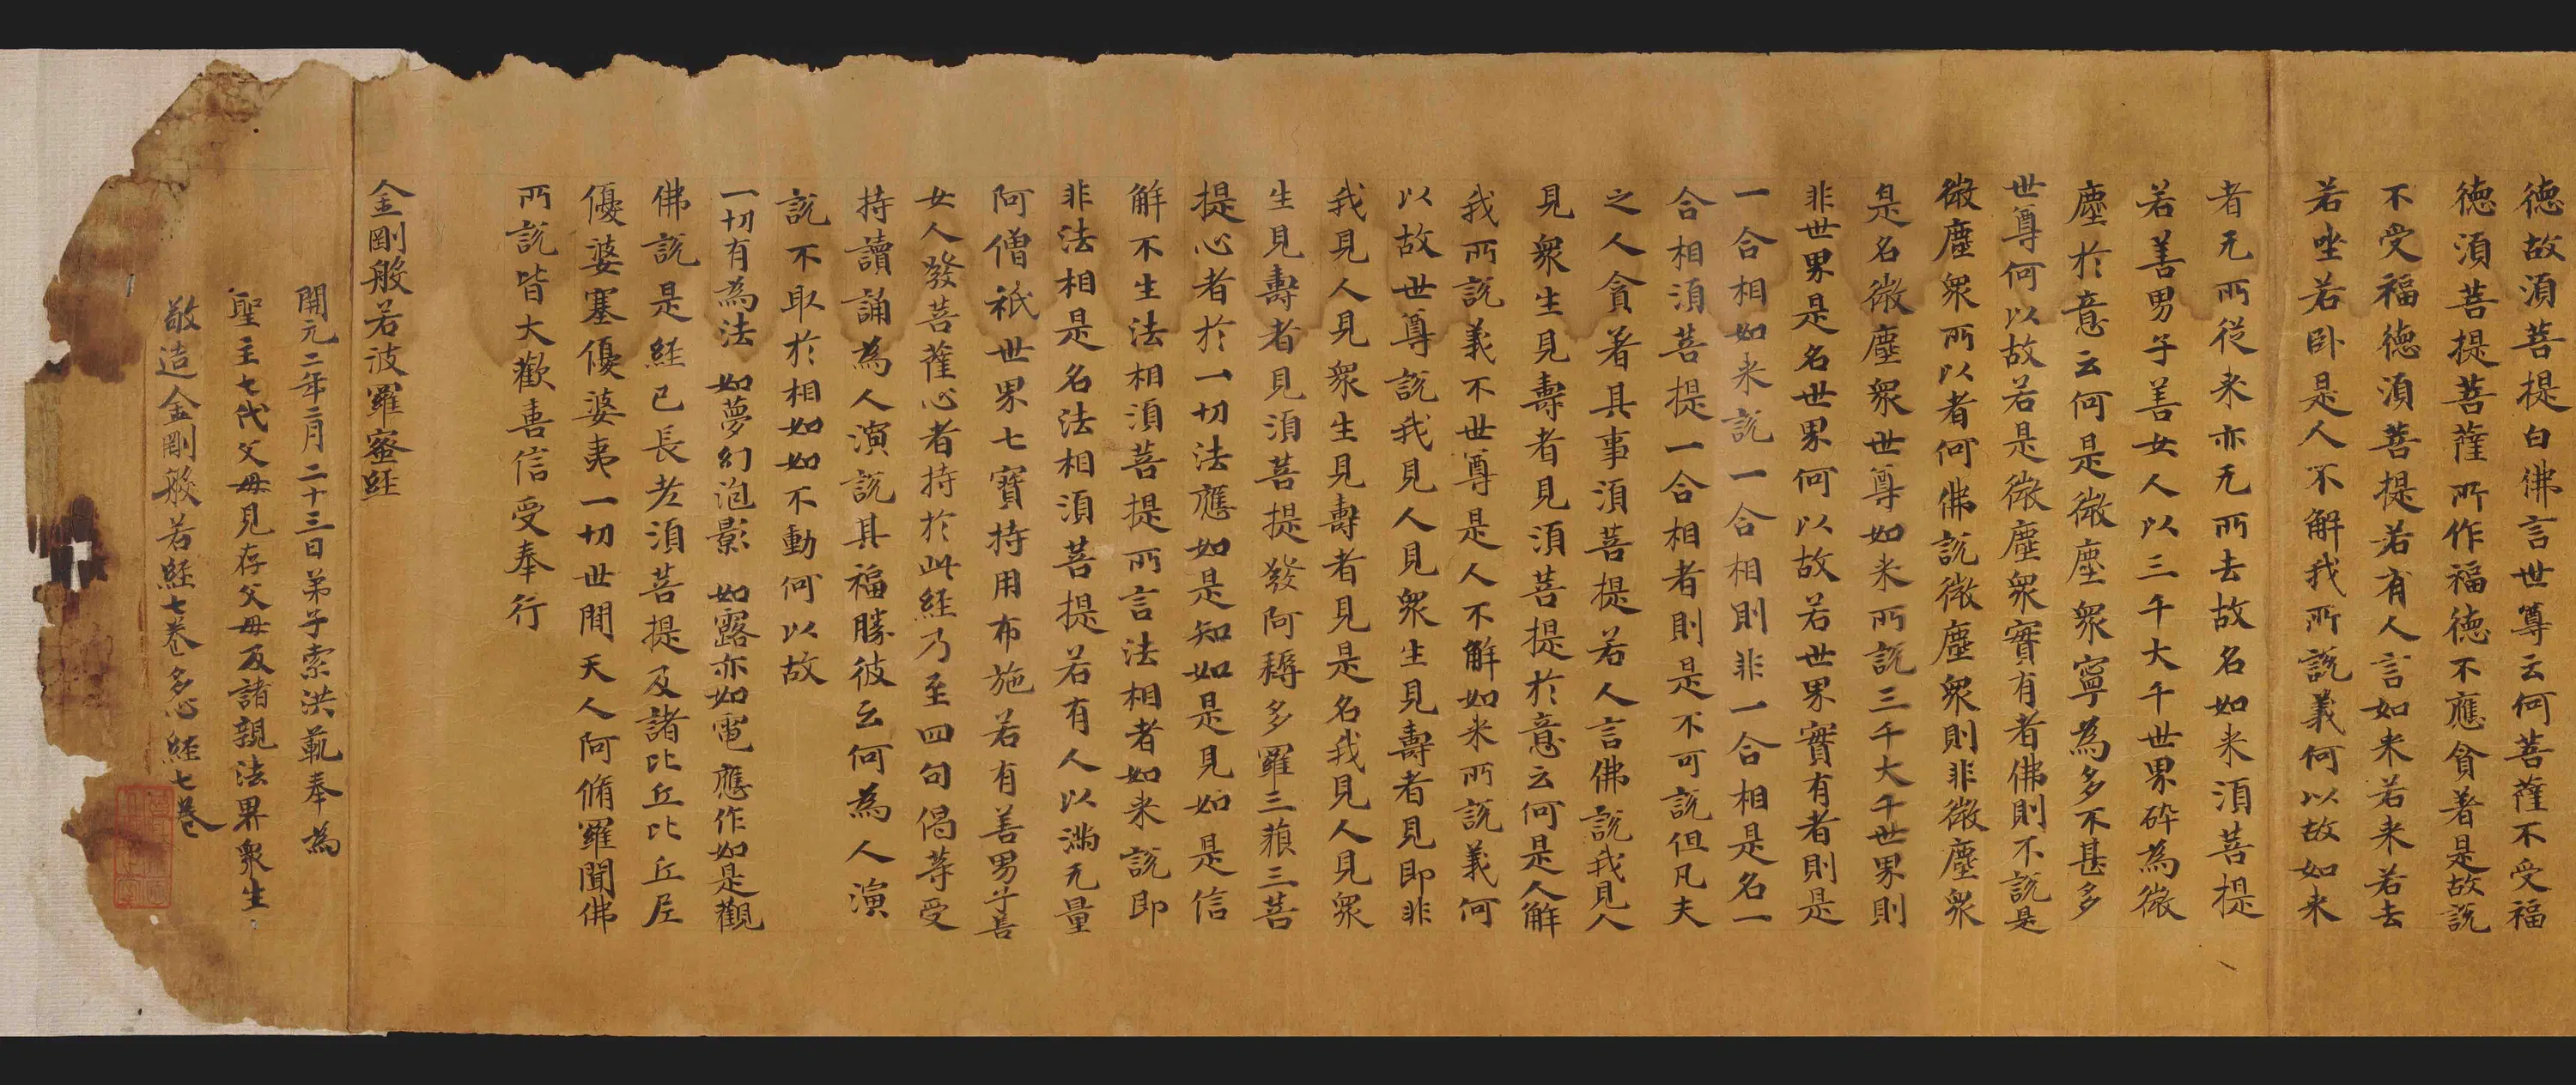 德故須菩提白佛言世尊云何菩薩不受福
德須菩提菩薩所作福德不應貪著是故說
不受福德須菩提若有人言如来若来若去
若坐若卧是人不解我所說義何以故如来
者无所從来亦无所去故名如来須菩提
若善男子善女人以三千大千世界碎為微
塵於意云何是微塵衆寧為多不甚多
世尊何以故若是微塵衆實有者佛則不說是
微塵衆所以者何佛說微塵衆則非微塵衆
是名微塵衆世尊如来所說三千大千世界則
非世界是名世界何以故若世界實有者則是
一合相如来說一合相則非一合相是名一
合相須菩提一合相者則是不可說但凡夫
之人貪著其事須菩提若人言佛說我見人
見衆生見壽者見須菩提於意云何是人解
我所說義不世尊是人不解如来所說義何
以故世尊說我見人見衆生見壽者見即非
我見人見衆生見壽者見是名我見人見衆
生見壽者見須菩提發阿耨多羅三藐三菩
提心者於一切法應如是知如是見如是信
解不生法相須菩提所言法相者如来說即
非法相是名法相須菩提若有人以滿无量
阿僧祇世界七寶持用布施若有善男子善
女人發菩薩心者持於此経乃至四句偈等受
持讀誦為人演說其福勝彼云何為人演
說不取於相如如不動何以故
一切有為法 如夢幻泡影 如露亦如電 應作如是觀
佛說是経已長老須菩提及諸比丘比丘尼
優婆塞優婆夷一切世間天人阿脩羅聞佛
所說皆大歡喜信受奉行
金剛般若波羅蜜経
開元二年二月二十三日弟子索洪範奉為
聖主七代父母見存父母及諸親法界衆生
敬造金剛般若経七卷多心経七卷